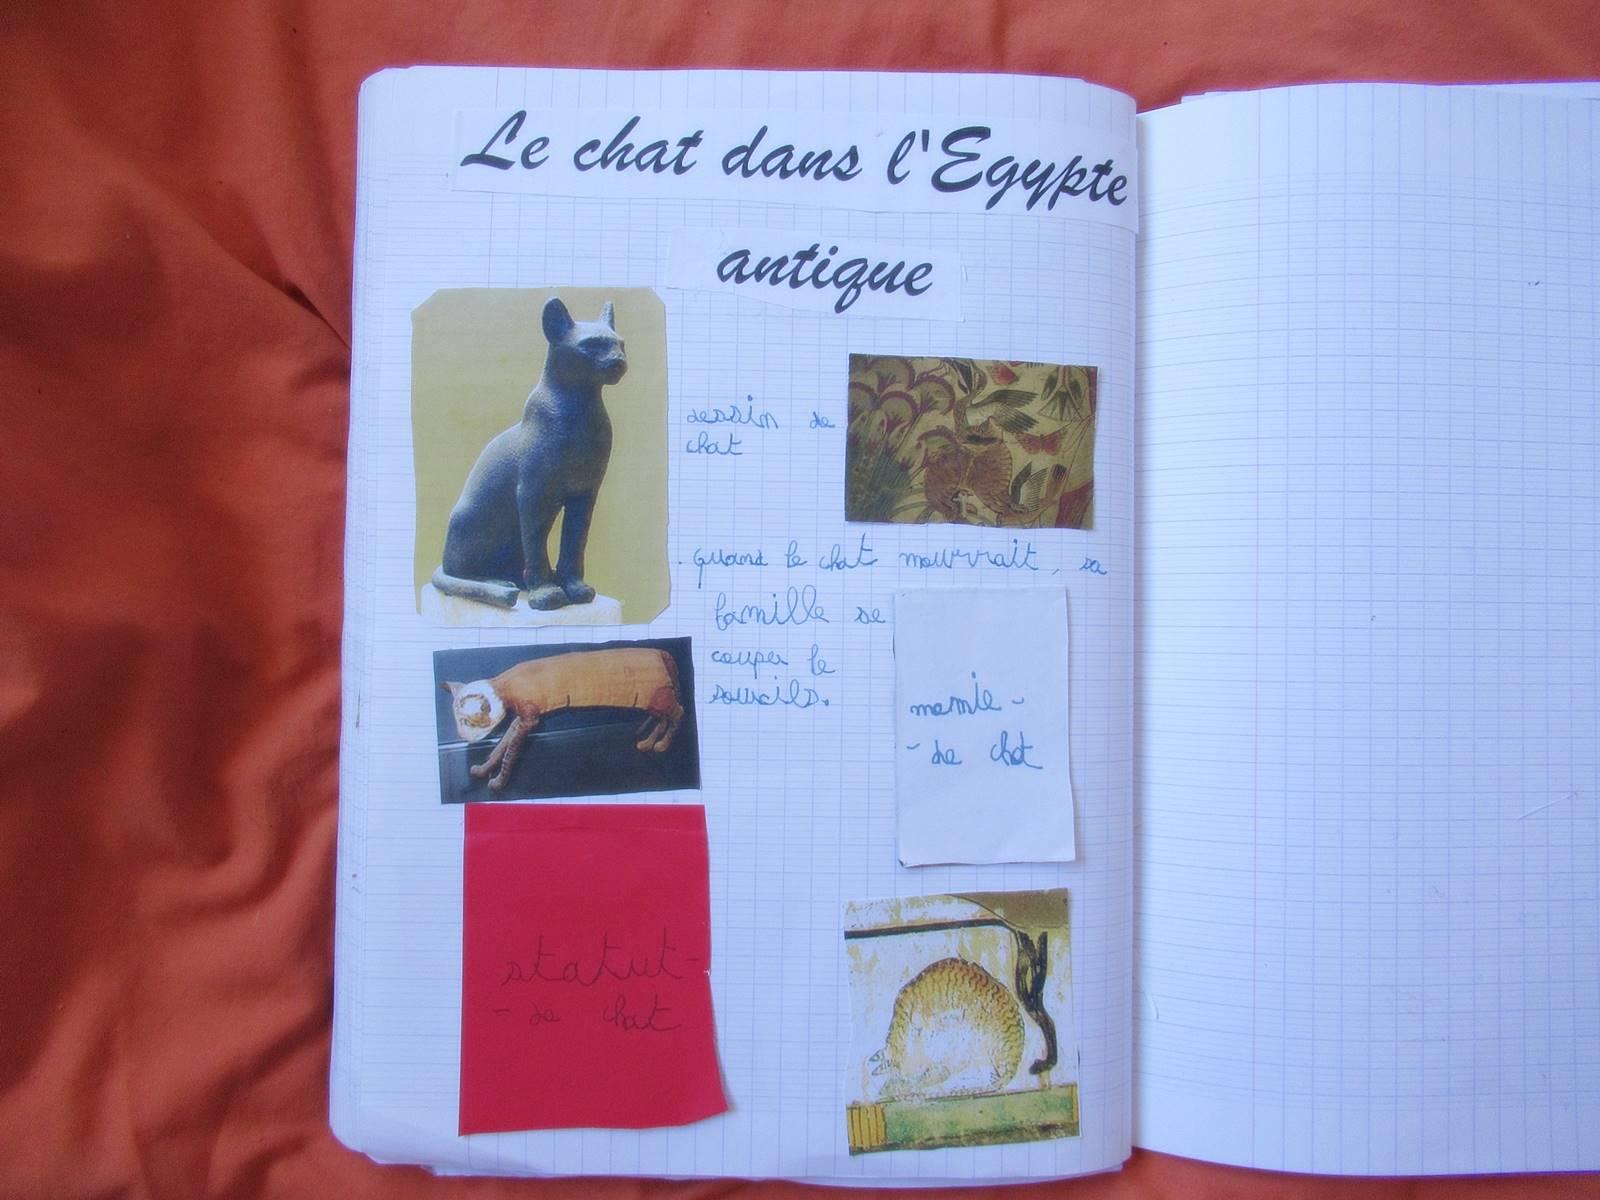 Le chat dans l'Egypte
antique
dessin de
chat
. quand le chat mourrait, sa
famille se
coupe le
soucils.
momie -
- de chat
statut -
- de chat